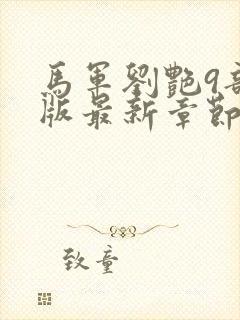 馬軍劉艷9部
版最新章節
致童